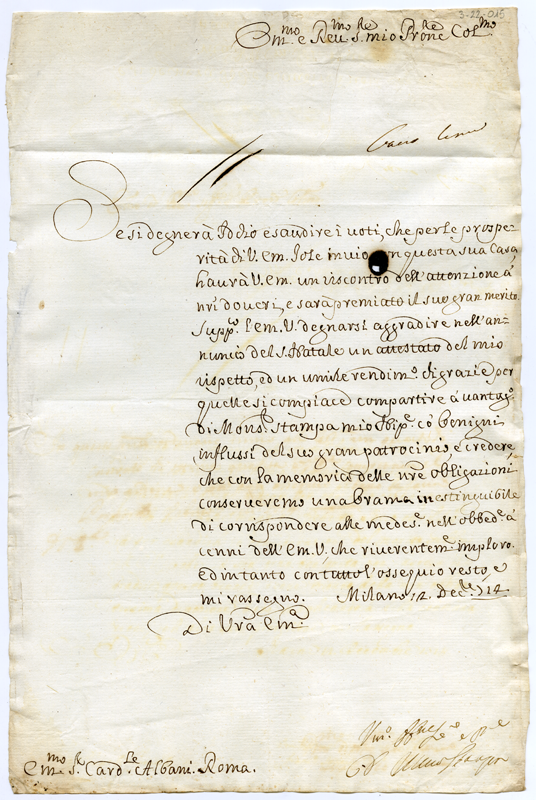 3-22-015
Em.mo e Reu.mo S.re mio Prone Col.mo
Se si degnerà Iddio esaudire i voti, che per le prospe-
rità di V. Em. Io le inuio, in questa sua Casa
haurà V. Em. un riscontro dell'attenzione à
nri doueri, e sarà premiato il suo gran merito.
Supp.co l'Em. V. degnarsi aggradire nell'an-
nuncio del S. Natale un attestato del mio
rispetto, ed un umile rendim.o di grazie per
quelle si compiace compartire à uantag.o
di Mons.r Stampa mio Nip.e co' benigni
influssi del suo gran patrocinio, e credere,
che con la memoria delle nre obligazioni
conserueremo una brama inestinguibile
di corrispondere alle medes.e nell'obbed.a à
cenni dell'Em. V., che riuerentem.e imploro.
Ed in tanto con tutto l'ossequio resto, e
mi rassegno. Milano 12. Dec.e 714
Di Vra Em.a
Em.mo S.r Card.le Albani. Roma.